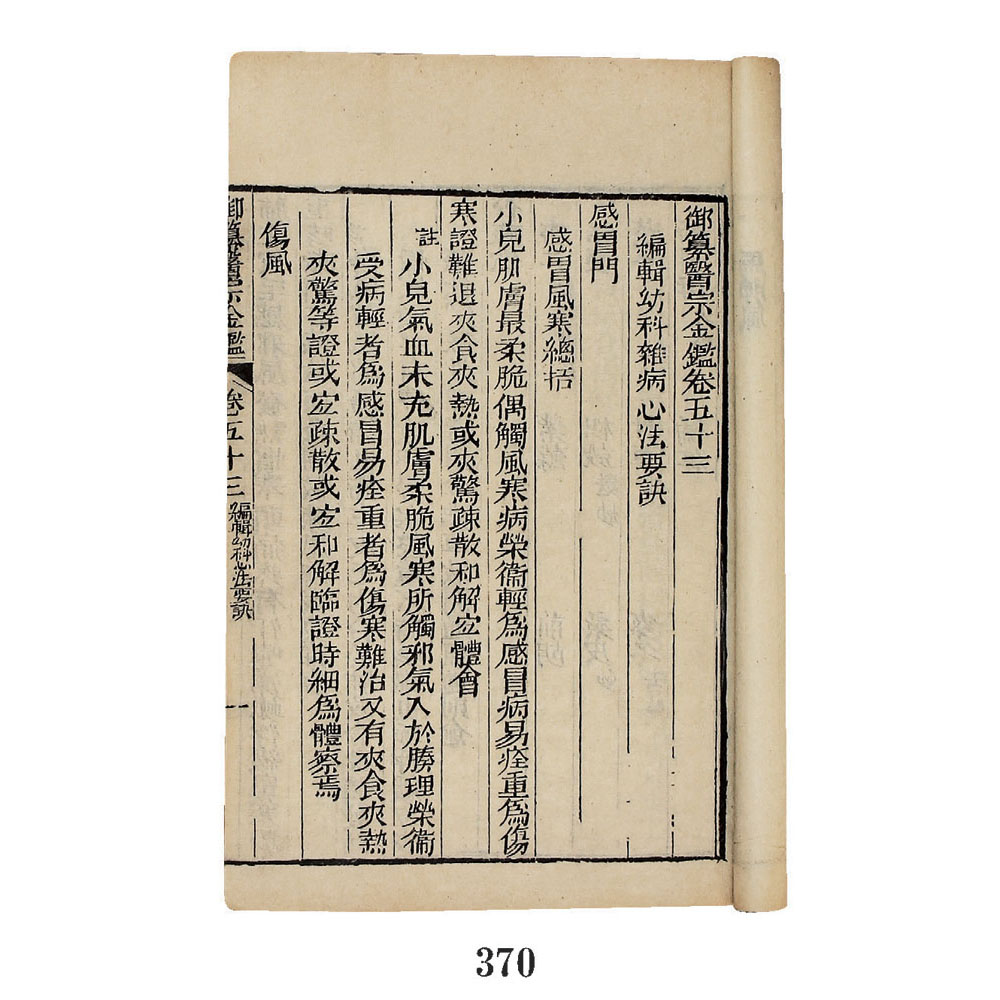 御纂醫宗金鑑卷五十三
編輯幼科雜病心法要訣
感冒門
感冒風寒總括
小兒肌膚最柔脆偶觸風寒病榮衞輕爲感冒病易痊重爲傷
寒證難退夾食夾熱或夾驚疎散和解宐體會
註小兒氣血未充肌膚柔脆風寒所觸邪氣入於腠理榮衞
受病輕者爲感冒易痊重者爲傷寒難治又有夾食夾熱
夾驚等證或宐疎散或宐和解臨證時細爲體察焉
傷風
御纂醫宗金鑑 卷五十三 編輯幼科心法要訣 一
370